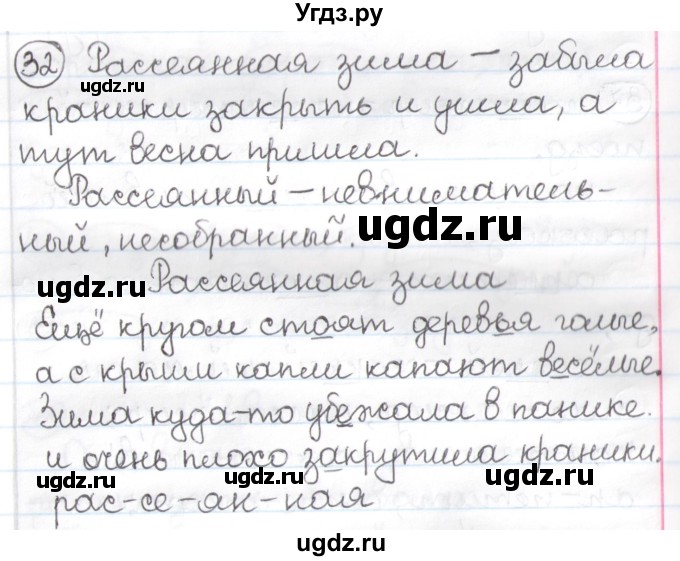 Угдз.ру
32 Рассеянная зима – забыла
gdz.ru
краники закрыть и ушла, а
тут весна пришла.
Рассеянный – невниматель-
ный, несобранный.
ugdz.ru
Рассеянная зима
ugdz.ru
Ещё кругом стоят деревья голые,
а с крыши капли капают весёлые.
ugdz.ru
Зима куда-то убежала в панике.
и очень плохо закрутила краники.
ugdz.ru ugdz.ru
рас-се-ян-ная
ugdz.ru